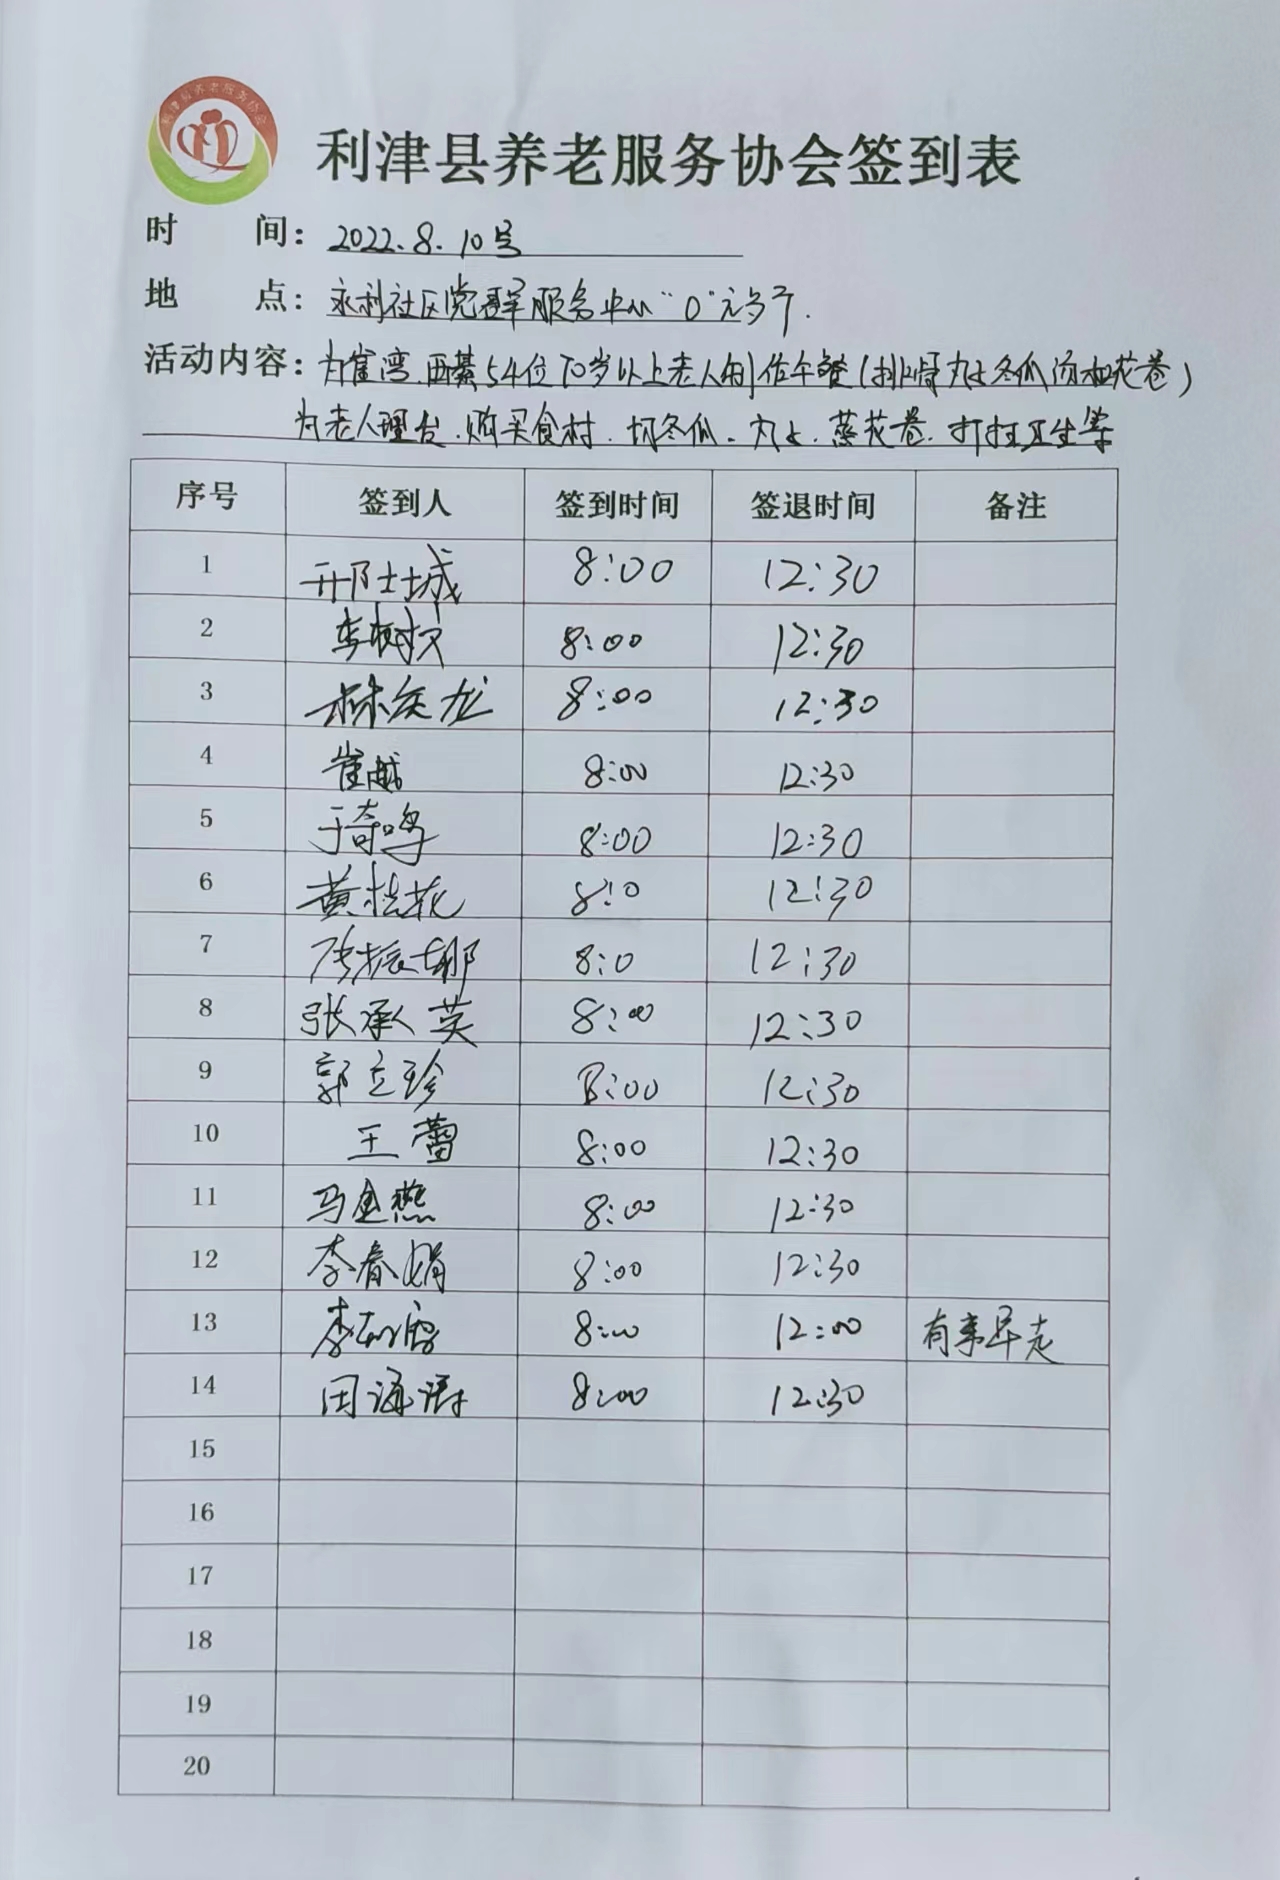 利津县养老服务协会
利津县养老服务协会签到表
时 间: 2022.8.10号
地 点: 永利社区党群服务中心"0"元
活动内容: 为崔湾、西綦54位70岁以上老人制作午餐(排骨丸子冬瓜汤和花卷)
为老人理发、购买食材、切冬瓜、丸子、蒸花卷、打扫卫生等
序号 签到人 签到时间 签退时间 备注
1 邢士城 8:00 12:30
2 李树 8:00 12:30
3 龙 8:00 12:30
4 崔越 8:00 12:30
5 于奇鸣 8:00 12:30
6 黄桂花 8:0 12:30
7 张振娜 8:0 12:30
8 张承英 8:00 12:30
9 郭立珍 8:00 12:30
10 王蕾 8:00 12:30
11 马金燕 8:00 12:30
12 李春娟 8:00 12:30
13 李 8:00 12:00 有事早走
14 田海涛 8:00 12:30
15
16
17
18
19
20